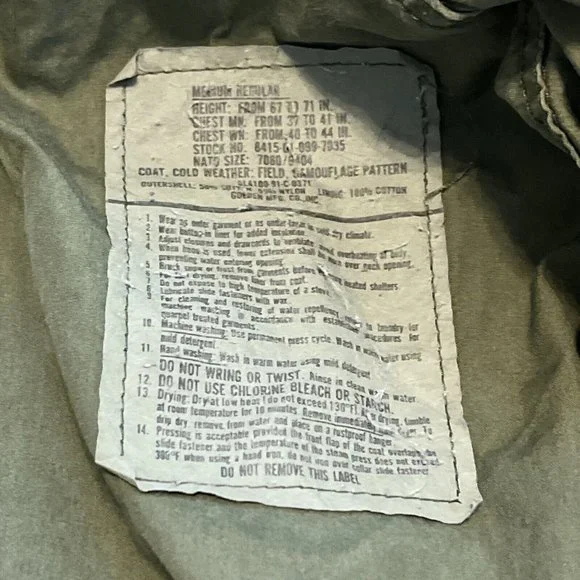 MEDIUM REGULAR
HEIGHT: FROM 67 TO 71 IN.
CHEST MN: FROM 37 TO 41 IN.
CHEST WN: FROM 40 TO 44 IN.
STOCK NO. 8415-01-099-7835
NATO SIZE: 7080/9404
COAT, COLD WEATHER: FIELD, CAMOUFLAGE PATTERN
DLA100-91-C-0371
OUTERSHELL: 50% COTTON 50% NYLON LINING 100% COTTON
GOLDEN MFG. CO., INC.
1. Wear as outer garment or as under-layer in cold dry climate.
2. Wear button-in liner for added insulation.
3. Adjust closures and drawcords to ventilate avoid overheating of body
4. When hood is used, lower extension shall be over neck opening,
preventing water entering opening.
5. Brush snow or frost from garments before heated shelters.
6. For drying, remove liner from coat.
7. Do not expose to high temperature of a stove.
8. Lubricate slide fasteners with wax.
9. For cleaning and restoring of water repellency, to laundry for
machine washing in accordance with established procedures for
quarpel treated garments.
10. Machine washing: Use permanent press cycle. Wash in warm water using
mild detergent.
11. Hand washing: Wash in warm water using mild detergent
DO NOT WRING OR TWIST. Rinse in clean warm water.
12. DO NOT USE CHLORINE BLEACH OR STARCH.
13. Drying: Dry at low heat (do not exceed 130°F). drying, tumble
at room temperature for 10 minutes. Remove immediately To
drip dry, remove from water and place on a rustproof hanger.
14. Pressing is acceptable provided the front flap of the coat overlaps the
slide fastener and the temperature of the steam press does not exceed
300°F when using a hand iron, do not iron over collar slide fastener.
DO NOT REMOVE THIS LABEL